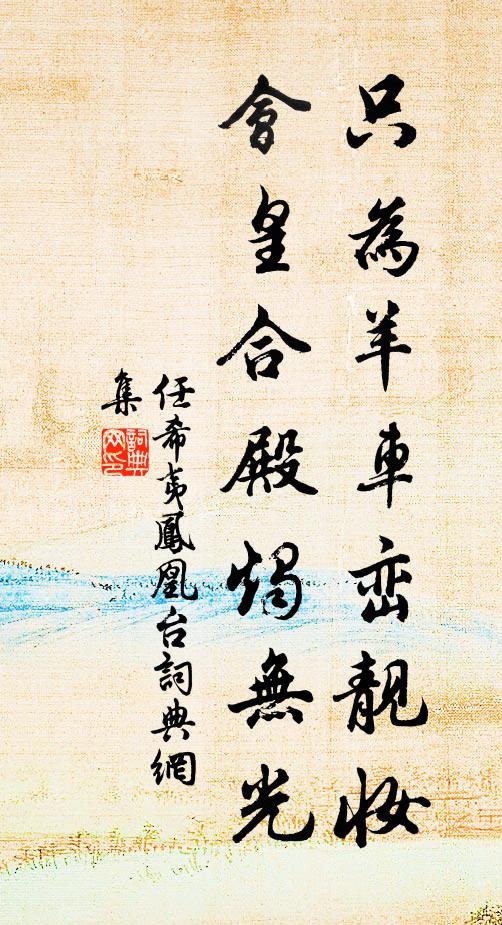 只為羊車巒靚妝
會皇合殿燭無光
任希夷鳳凰台詞典網
集
詞典網印